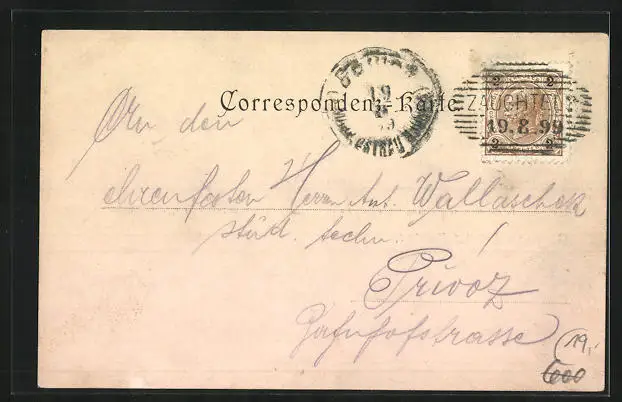 Correspondenz-Karte
2 2
ZAUCHTL
19.8.99
2 2
19
8
An den
ehrenfesten Herrn Ant. Wallaschek
stud. techn. !
Přivoz
Bahnhofstrasse
19,-
600